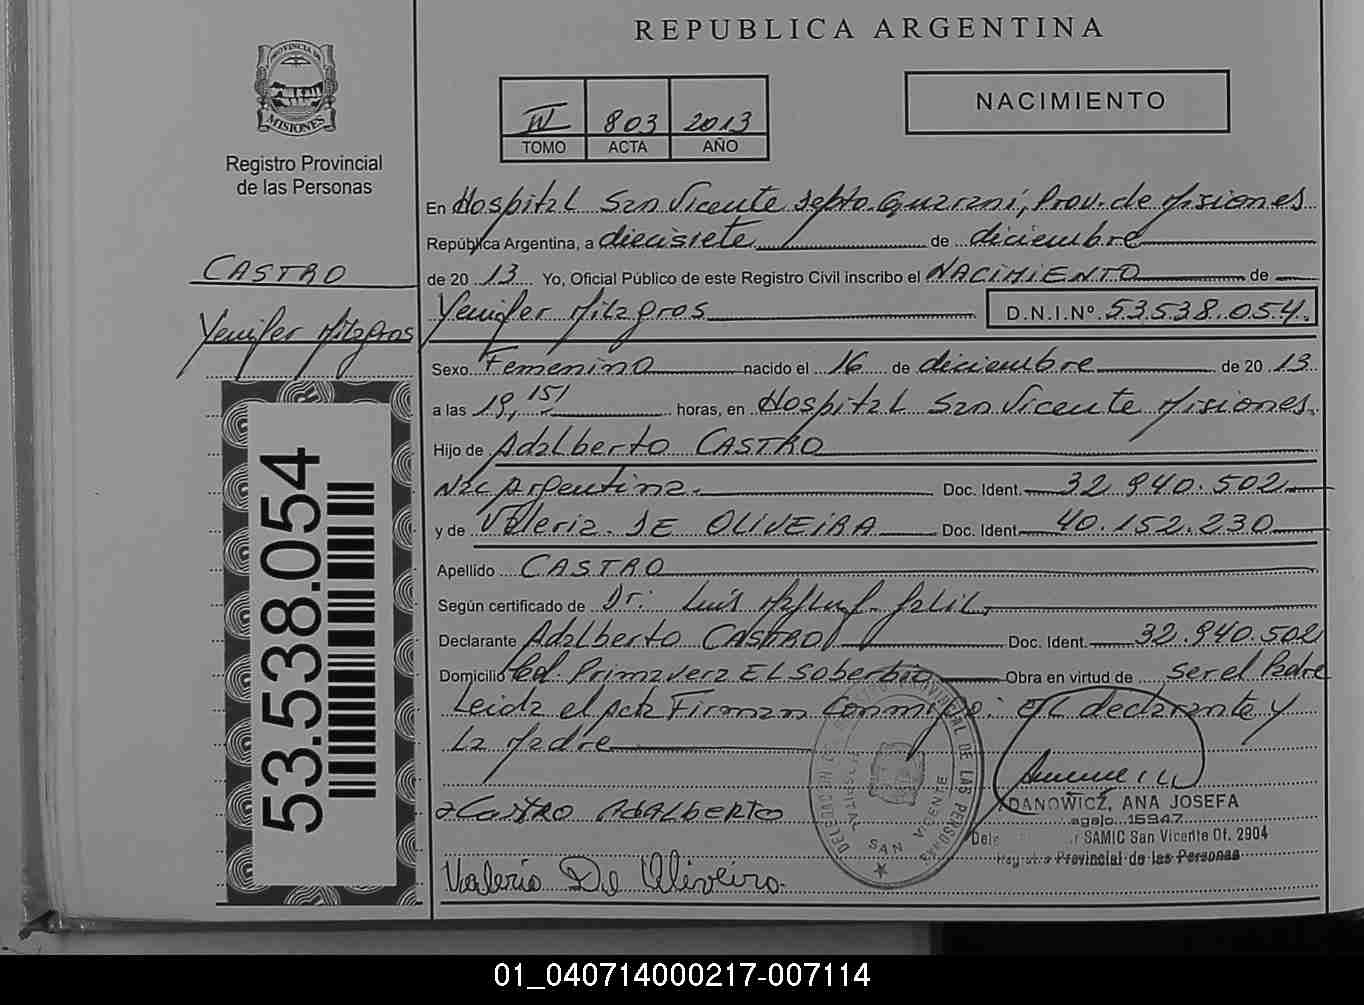 REPUBLICA ARGENTINA
PROVINCIA DE
MISIONES
Registro Provincial
de las Personas
NACIMIENTO
IV 803 2013
TOMO ACTA AÑO
CASTRO
Yenifer Milagros
53.538.054
En Hospital San Vicente Depto. Guarani, Prov. de Misiones
República Argentina, a diecisiete de diciembre
de 20 13 Yo, Oficial Público de este Registro Civil inscribo el NACIMIENTO de
Yenifer Milagros D.N.I.Nº 53538.054.
Sexo Femenino nacido el 16 de diciembre de 20 13
a las 19,15' horas, en Hospital San Vicente Misiones.
Hijo de Adalberto CASTRO
Nac Argentina. Doc. Ident. 32.940.502
y de Valeria DE OLIVEIRA Doc. Ident. 40.152.230
Apellido CASTRO
Según certificado de Dr: Luis
Declarante Adalberto CASTRO Doc. Ident. 32.940.502
Domicilio Col. Primavera El Soberbio Obra en virtud de ser el Padre
Leida el Acta Firman Conmigo: El declarante y
La Madre
CASTRO ADALBERTO
Valeria De Oliveira.
DE LAS PERSONAS
HOSPITAL SAN VICENTE
DANOWICZ, ANA JOSEFA
15947
SAMIC San Vicente Of. 2904
Provincial de las Personas
01_040714000217-007114